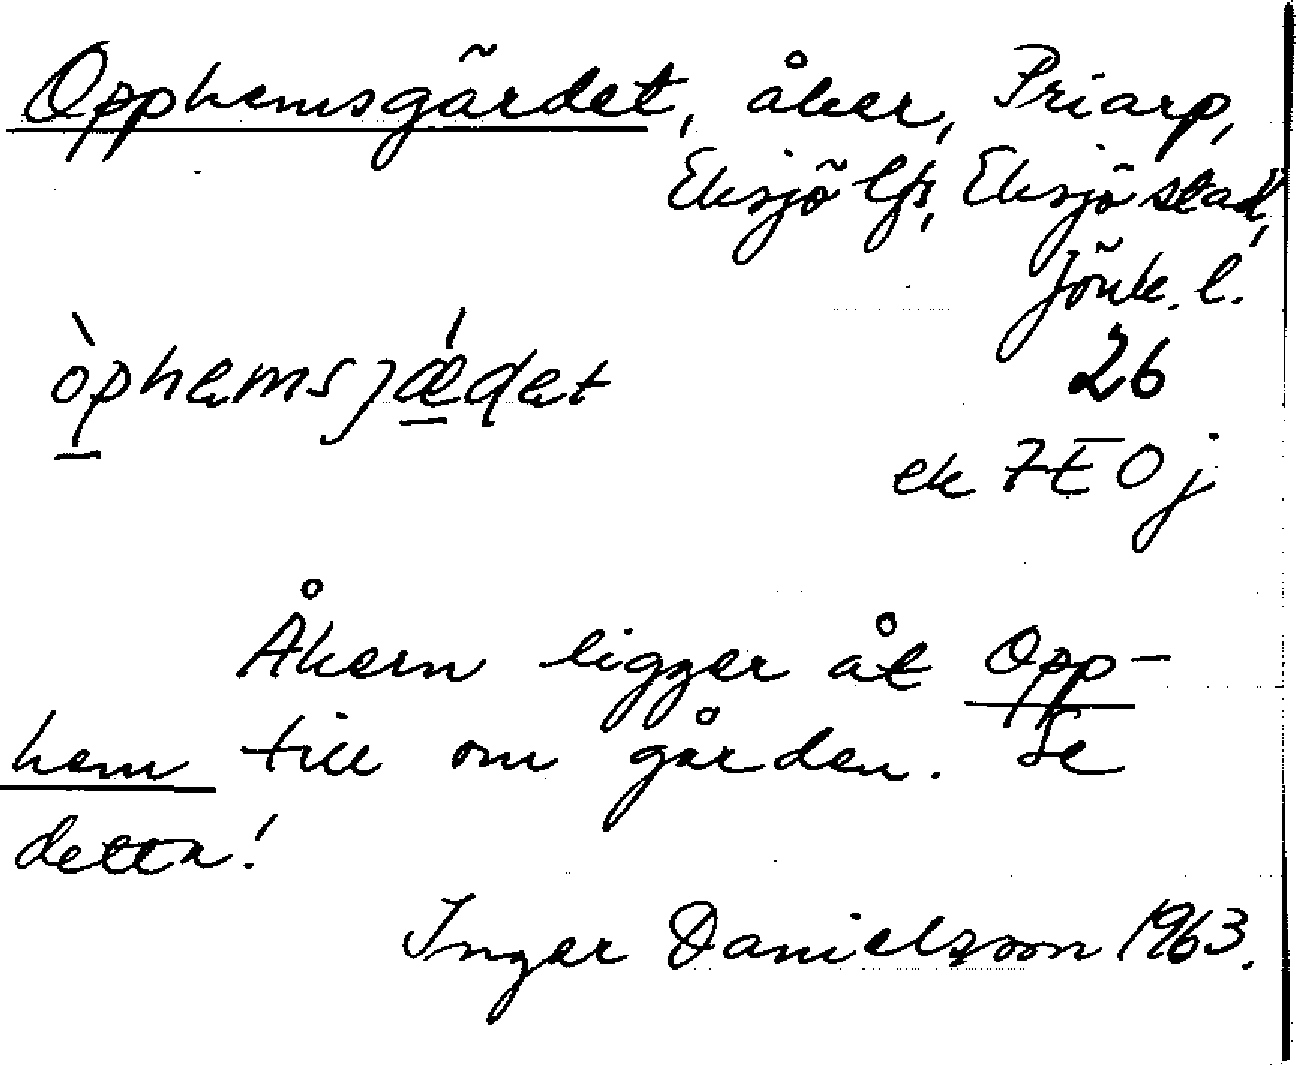 Opphemsgärdet, åker, Priarp,
Eksjö lfs, Eksjö stad,
Jönk. l.
òphemsjǽdet
26
ek 7E0j
Åkern ligger åt Opp-
hem till om gården. Se
detta!
Inger Danielsson 1963.